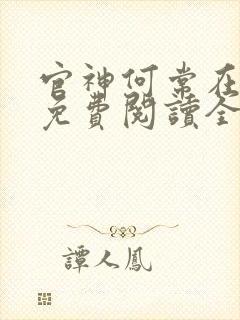 官神何常在
免費閱讀全
譚人鳳